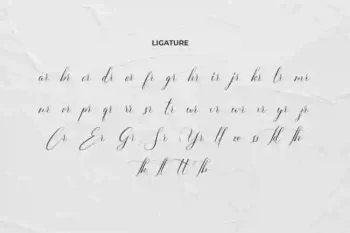 LIGATURE
ar br cr dr er fr gr hr ir jr kr lr mr
nr or pr qr rr sr tr ur vr wr xr yr zr
Cr Er Gr Sr Yr ff oo ss ld lh
fh fl tt th